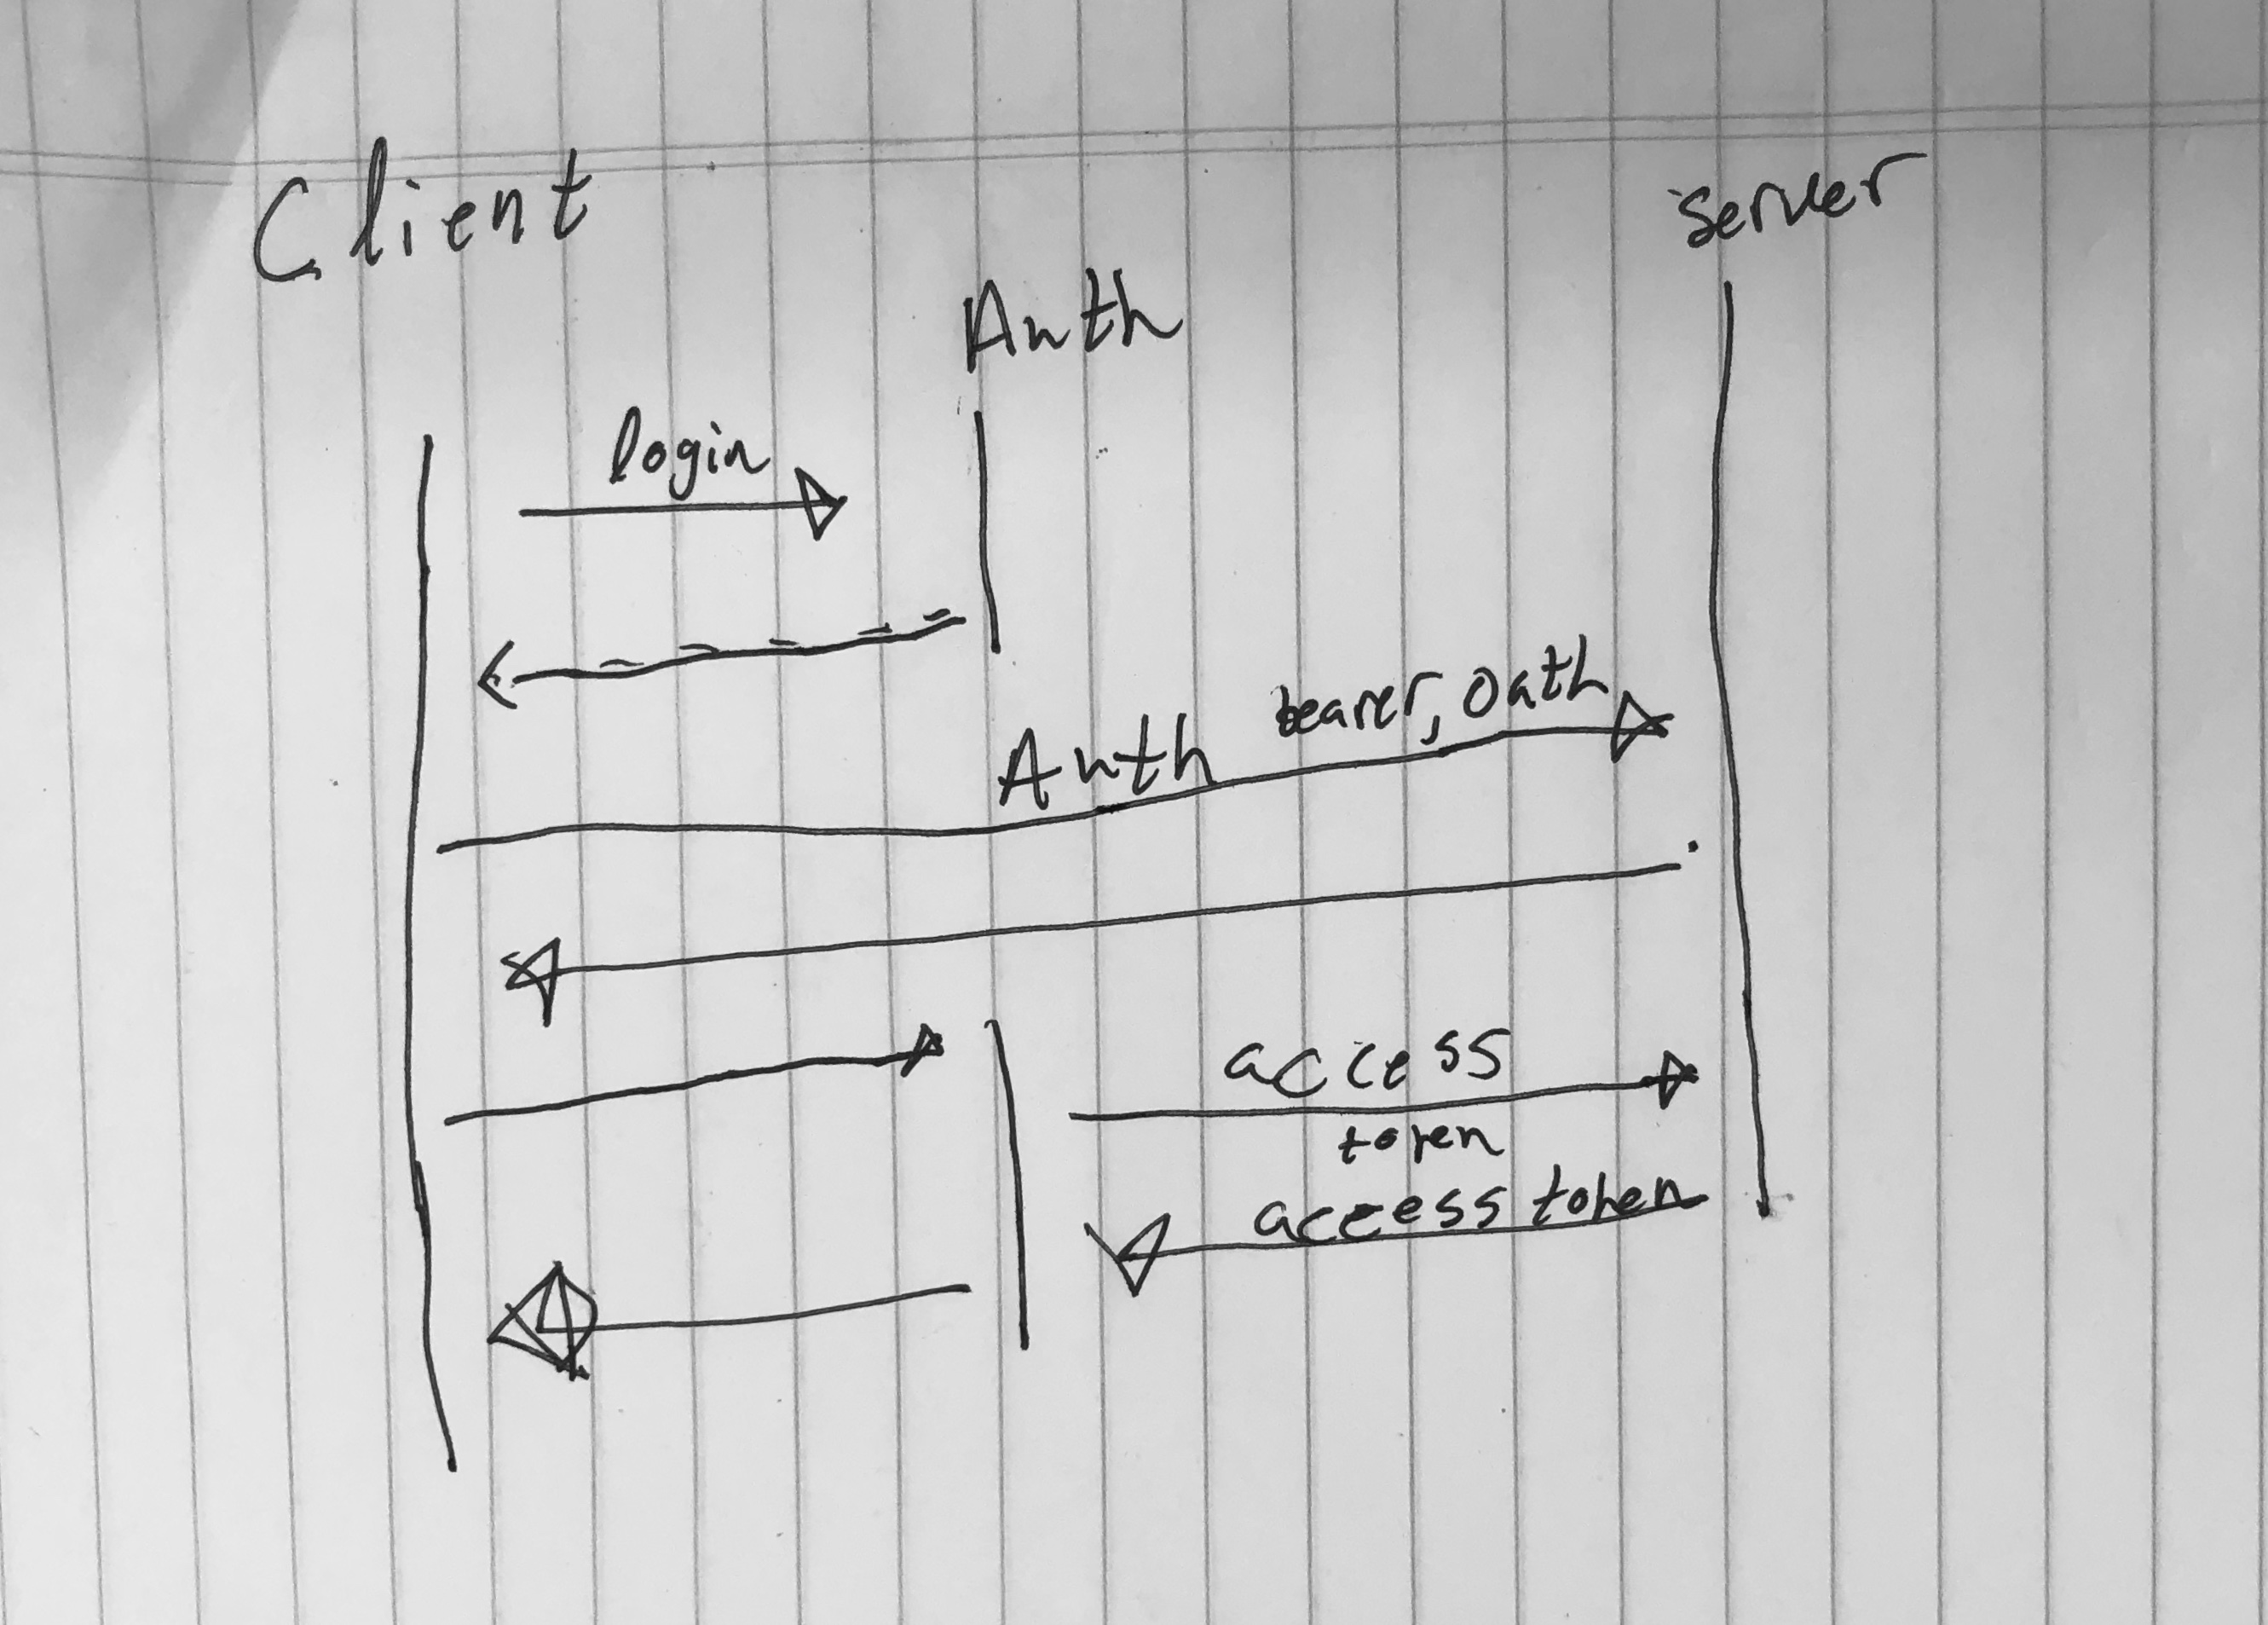 Client
Server
Auth
login
Auth bearer, Oath
access
token
access token